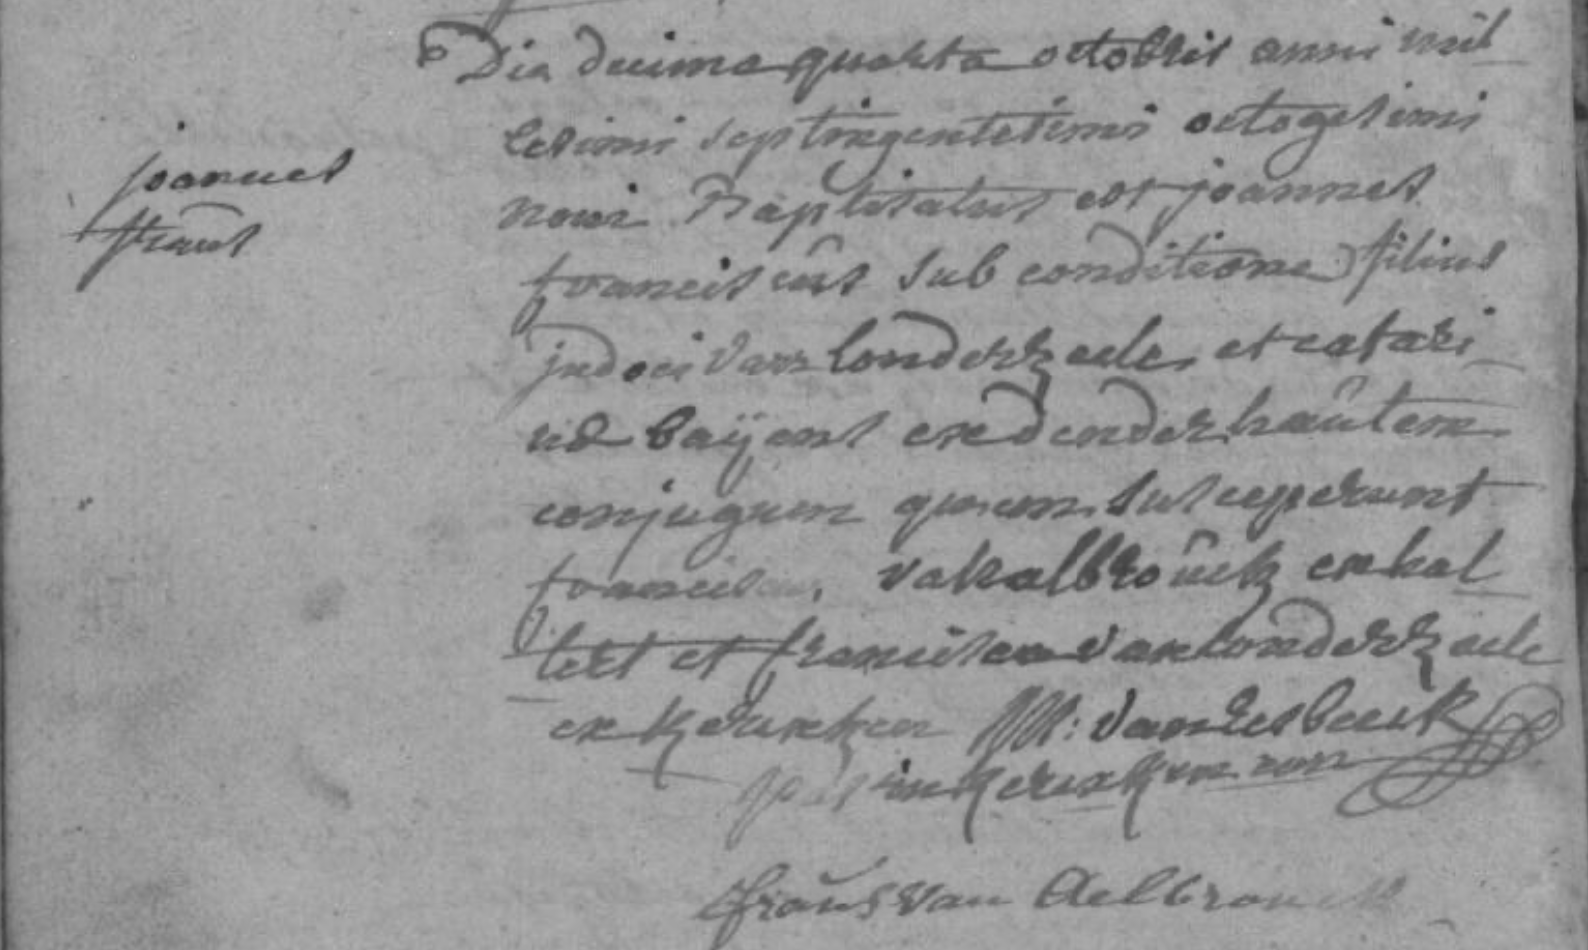 Die decima quarta octobris anni mil
joannes
lesimi septingentesimi octogesimi
frans
noni Baptisatus est joannes
franciscus sub conditione filius
judoci van londerzeele et catari
na baijens ex denderhautem
conjugum quem susceperunt
franciscus vakalbrouck ex kal
lert et francisca van londerzeele
ex kerexken JM: van Lesbeeck
past in kerexken
frans van Aelbrouck